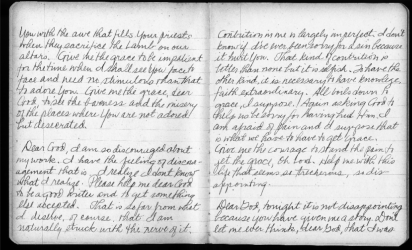 You with the awe that fills Your priests
when they sacrifice the Lamb on our
altars. Give me the grace to be impatient
for the time when I shall see You face to
face and need no stimulus than that
to adore You. Give me the grace, dear
God, to see the bareness and the misery
of the places where You are not adored
but desecrated.
Dear God, I am so discouraged about
my work. I have the feeling of discour-
agement that is. I realize I don't know
what I realize. Please help me dear God
to be a good writer and to get something
else accepted. That is so far from what
I deserve, of course, that I am
naturally struck with the nerve of it.
Contrition in me is largely imperfect. I don't
know if I've ever been sorry for a sin because
it hurt You. That kind of contrition is
better than none but it is selfish. To have the
other kind, it is necessary to have knowledge,
faith extraordinary. All boils down to
grace, I suppose. Again asking God to
help us be sorry for having hurt Him. I
am afraid of pain and I suppose that
is what we have to have to get grace.
Give me the courage to stand the pain to
get the grace, Oh Lord. Help me with this
life that seems so treacherous, so dis-
appointing.
Dear God, tonight it is not disappointing
because you have given me a story. Don't
let me ever think, dear God, that I was